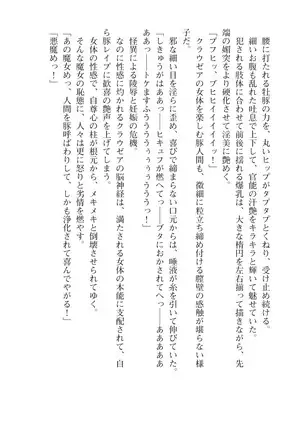 腰に打たれる牡豚の力を、丸いヒップがタプタプとくねり、受け止め続ける。
細いお腹も乱れた吐息で上下して、官能の汗艶をキラキラと輝いて魅せていた。
される肢体に合わせて前後に揺れる爆乳は、大きな楕円を左右揃って描きながら、先
端の媚突をより硬化させて淫美に艶めく。
「ブフヒッ、ブヒイイイイッ！」
クラウゼアの女体を楽しむ豚人間も、微細に粒立ち締め付ける膣壁の感触が堪らない様
子だ。
邪な細い目を淫らに歪め、喜びで締まらない口元からは、唾液が糸を引いて伸びていた。
「しきゅうがはぁあっ――ヒキュフが燃へてるうっ――ブタにおかされてへっ――あああああ
ああっ――トケますふうううううぅぅぅっっっ！」
怪異による陵辱と妊娠の危機。
なのに性感に灼かれるクラウゼアの脳神経は、満たされる女体の本能に支配されて、自
ら豚レイプに歓喜の艶声を上げてしまう。
女体の性感で、自尊心の柱が根元から、メキメキと倒壊させられてゆく。
そんな魔女の恥態に、人々は更に怒りと劣情を燃やす。
「あの魔女めっ、人間を豚呼ばわりして、しかも浄化されて喜んでやがる！」
「悪魔めっ！」